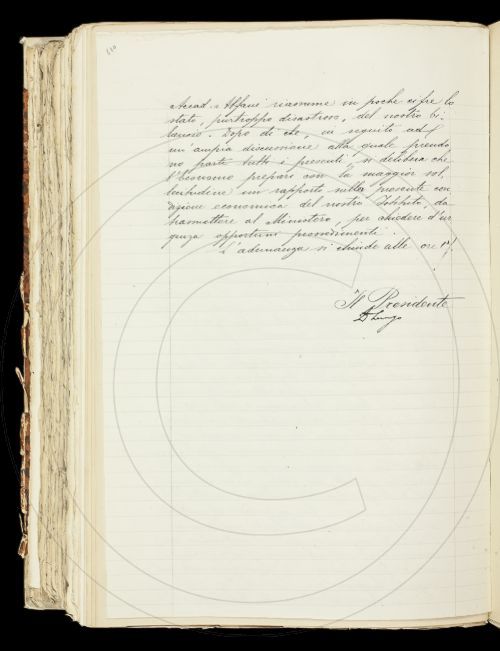 Accad. Alfani riassume in poche cifre lo
stato, purtroppo disastroso, del nostro bi-
lancio. Dopo di che, in seguito ad
un'ampia discussione alla quale prendo,
no parte tutti i presenti, si delibera che
l'Economo prepari con la maggior sol,
lecitudine un rapporto sulla presente con
dizione economica del nostro Istituto, da
trasmettere al Ministero, per chiedere d'ur
genza opportuni provvedimenti.
L'adunanza si chiude alle ore
Il Presidente